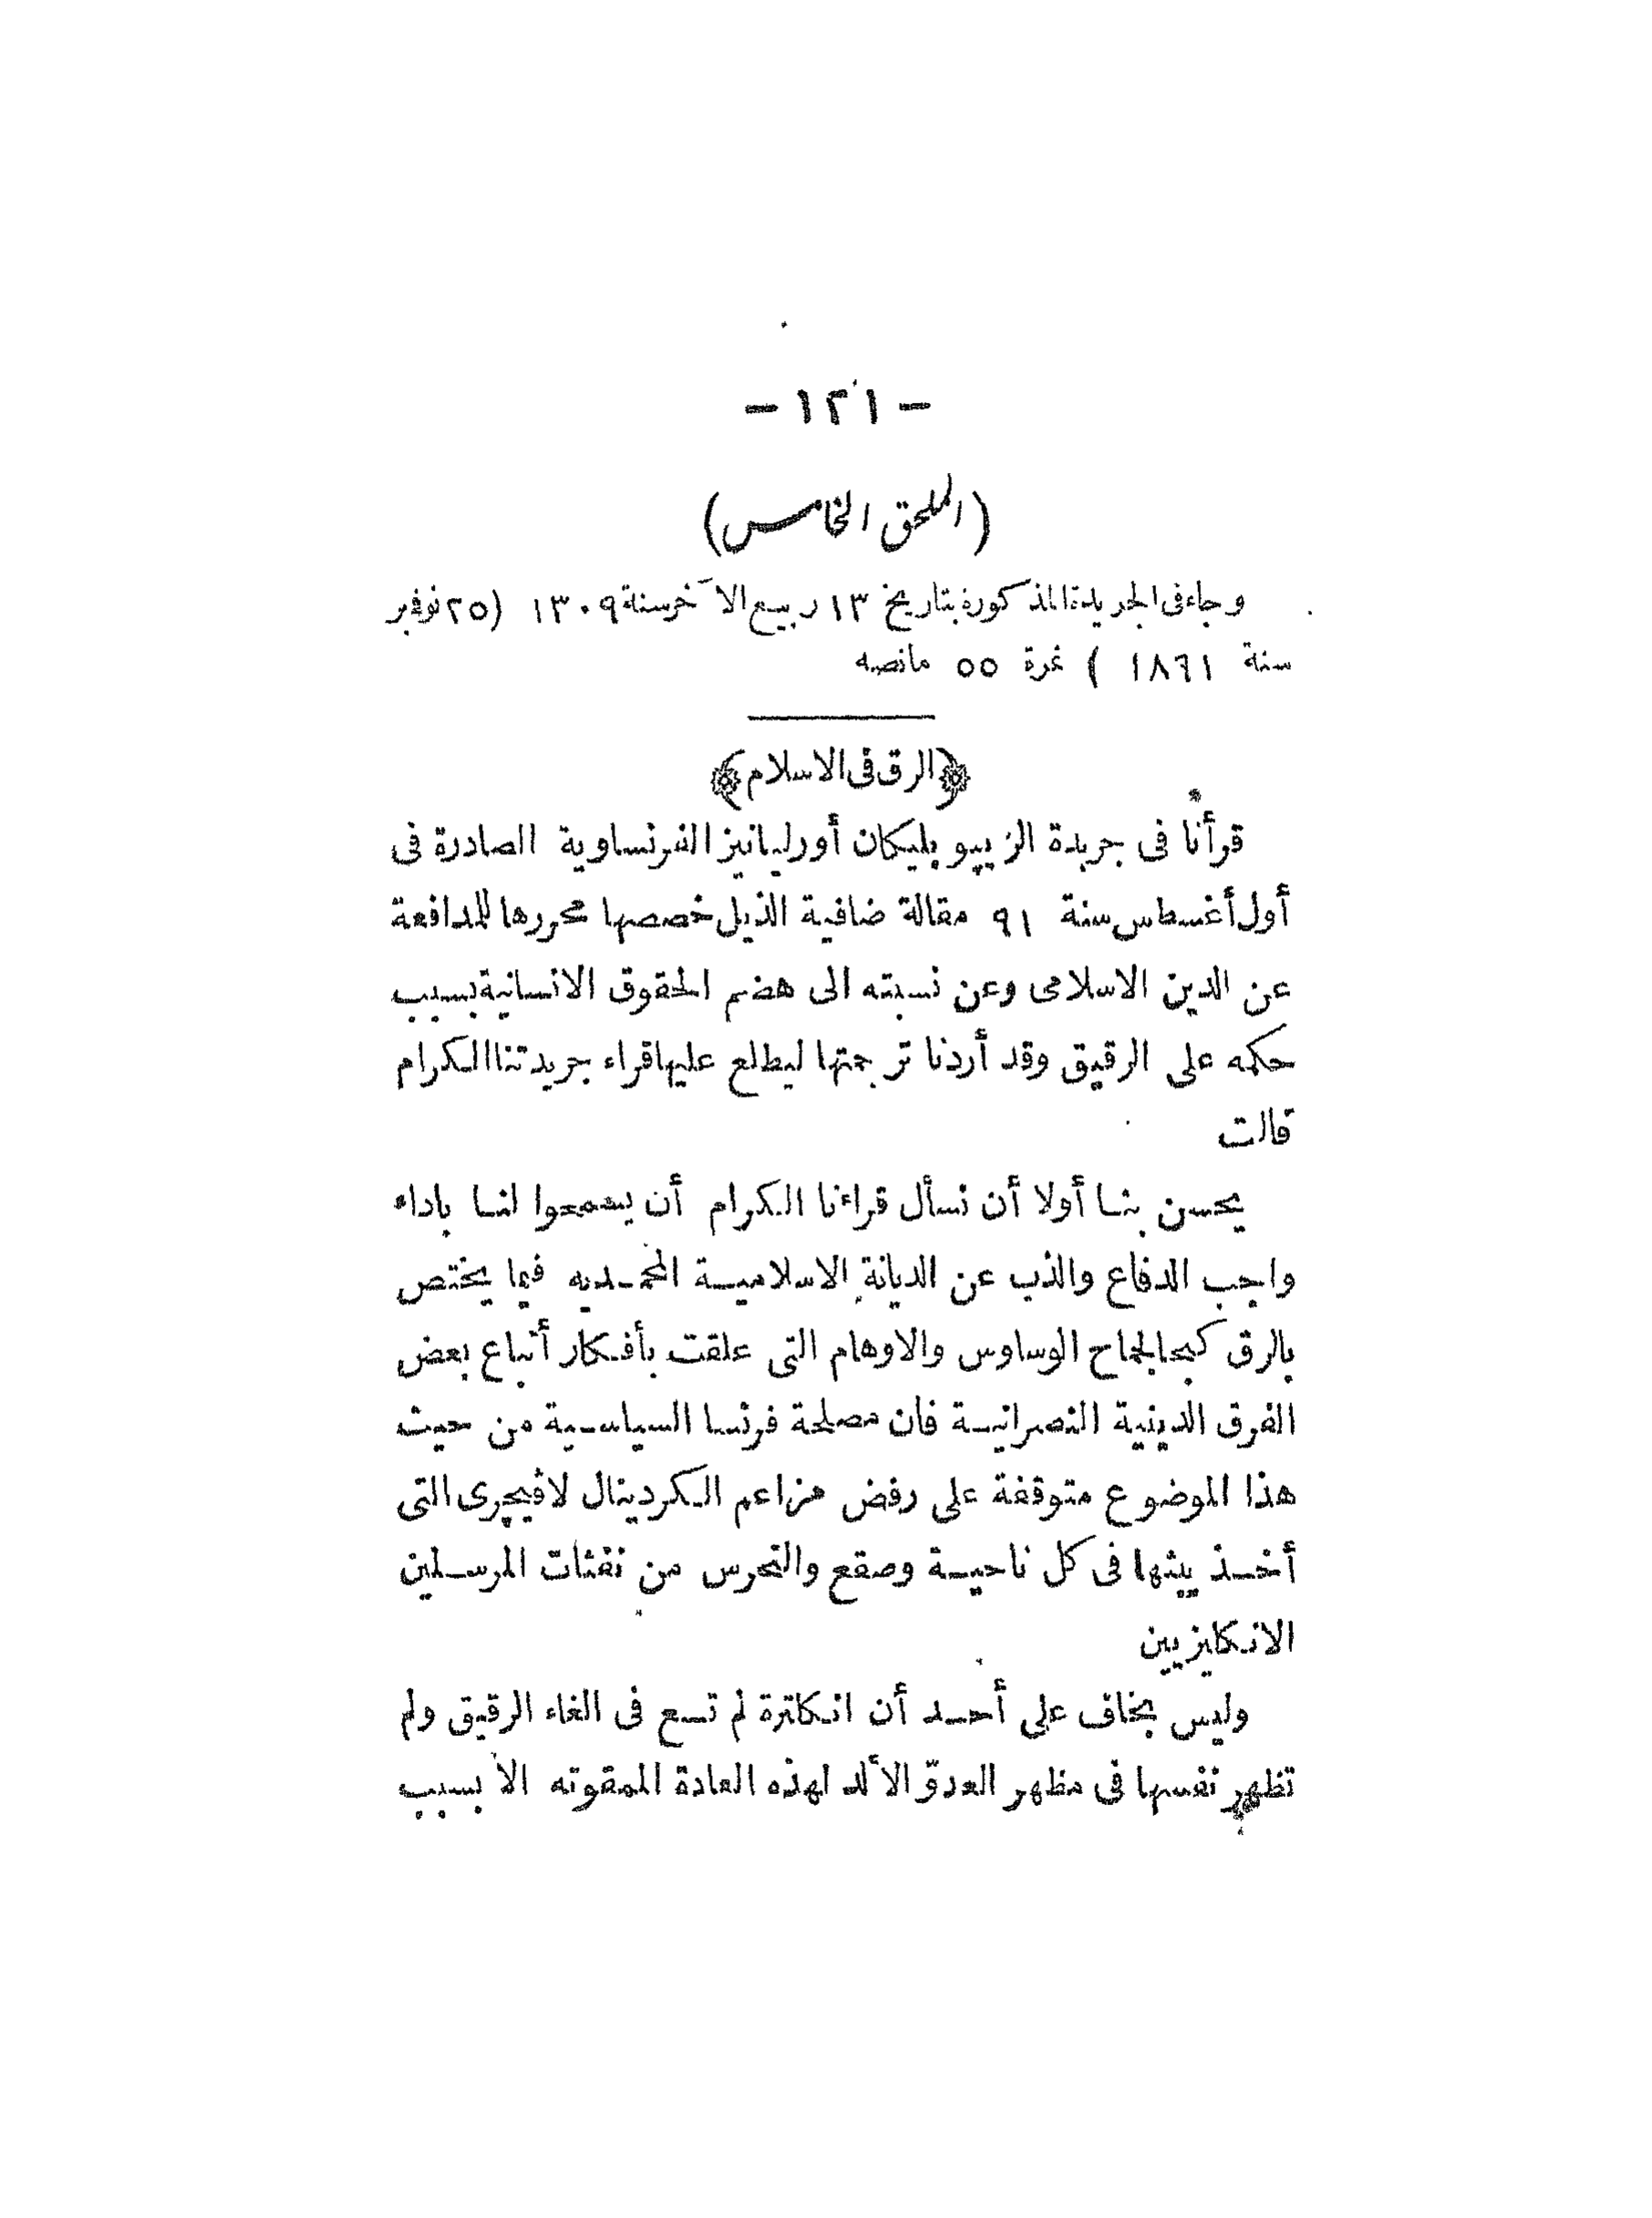 - ١٢١ -
(الملحق الخامس)
وجاء فى الجريدة المذكورة بتاريخ ١٣ ربيع الآخر سنة ١٣٠٩ (٢٥ نوفمبر
سنة ١٨٦١ ) نمرة ٥٥ مانصه
﴿الرق فى الاسلام﴾
قرأنا فى جريدة الريپو بليكان أورليانيز الفرنساوية الصادرة فى
أول أغسطس سنة ٩١ مقالة ضافية الذيل خصصها محررها للمدافعة
عن الدين الاسلامى وعن نسبته الى هضم الحقوق الانسانية بسبب
حكمه على الرقيق وقد أردنا ترجمتها ليطلع عليها قراء جريدتنا الكرام
قالت
يحسن بنا أولا أن نسأل قراءنا الكرام أن يسمحوا لنا باداء
واجب الدفاع والذب عن الديانة الاسلامية المحمديه فيما يختص
بالرق كبحا لجماح الوساوس والاوهام التى علقت بأفكار أتباع بعض
الفرق الدينية النصرانية فان مصلحة فرنسا السياسية من حيث
هذا الموضوع متوقفة على رفض مزاعم الكردينال لاڤيچرى التى
أخذ يبثها فى كل ناحية وصقع والتحرس من نفثات المرسلين
الانكليزيين
وليس بخاف على أحد أن انكلترة لم تسع فى الغاء الرقيق ولم
تظهر نفسها فى مظهر العدوّ الألد لهذه العادة الممقوته الا بسبب